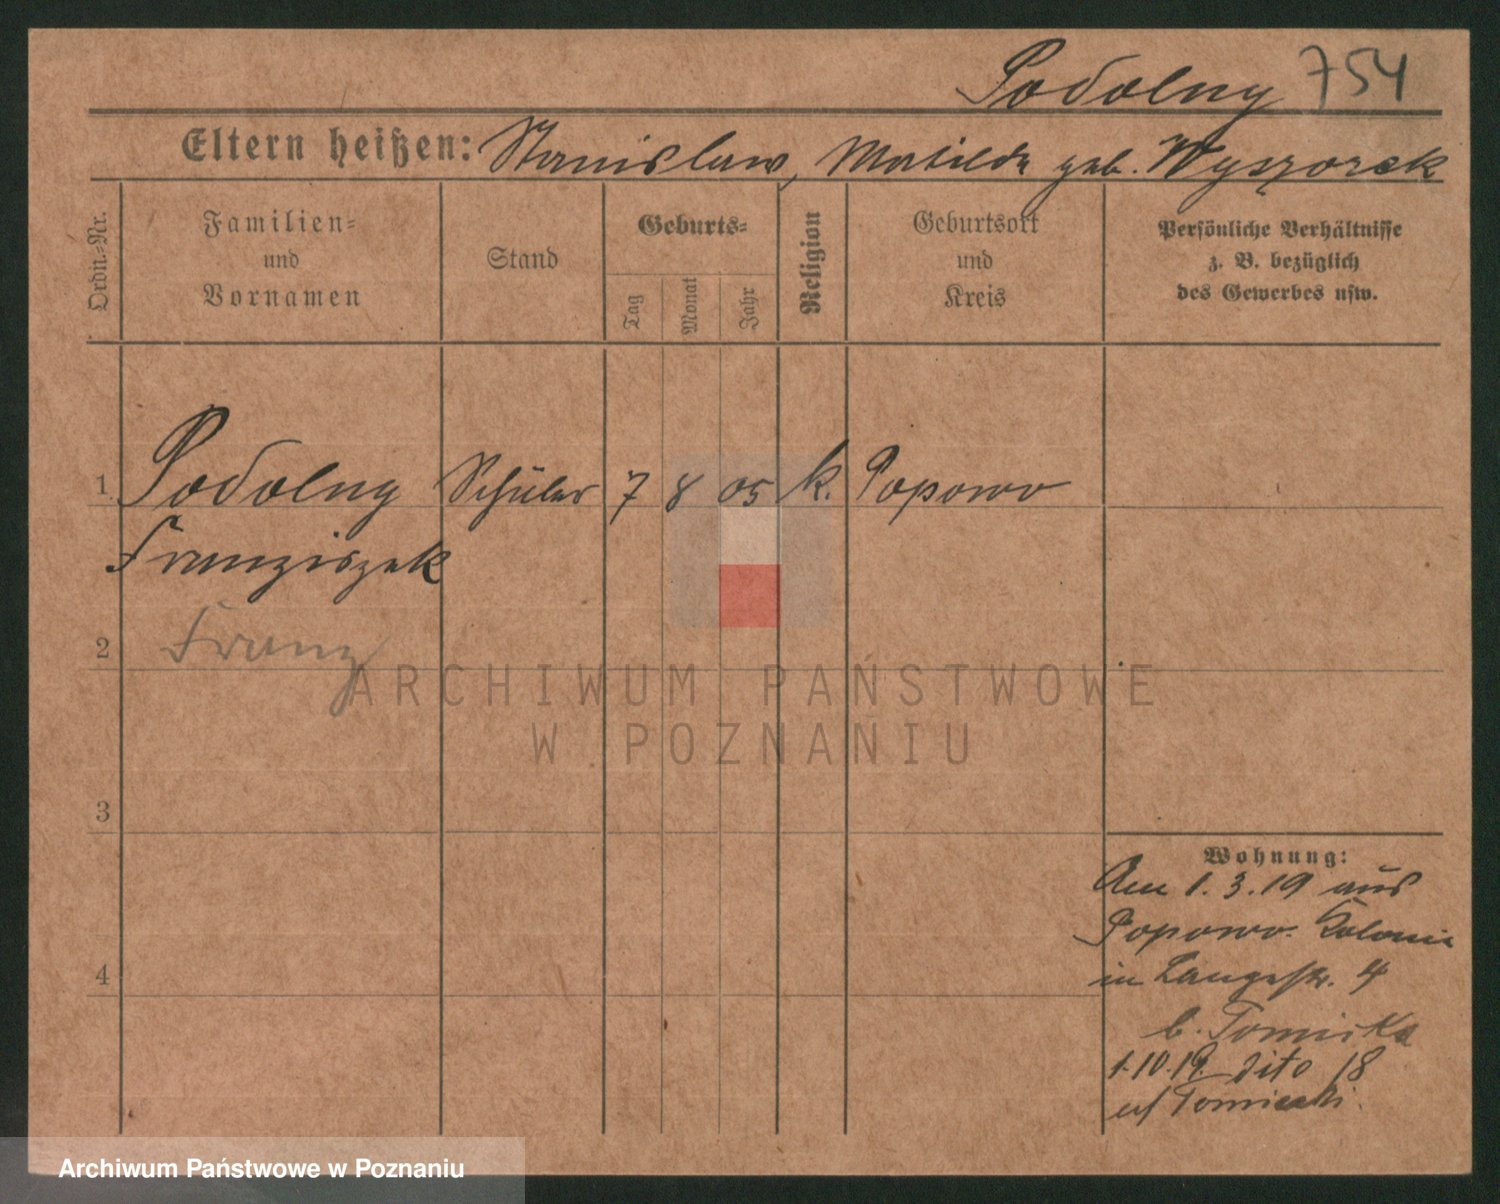 Podolny 754
Eltern heißen: Stanislaw, Matilda geb. Wyszorek
Ordn.-Nr.
Familien-
und
Vornamen
Stand
Geburts-
Tag
Monat
Jahr
Religion
Geburtsort
und
Kreis
Persönliche Verhältnisse
z. B. bezüglich
des Gewerbes usw.
1 Podolny Schüler 7 8 05 k. Popowo
Franziszek
2 Franz
3
4
Wohnung:
Am 1.3.19 aus
Popowo. Kolonie
in Langestr. 4
b. Tomicka
1.10.19. dito 18
Tomicki.
ARCHIWUM PAŃSTWOWE
W POZNANIU
Archiwum Państwowe w Poznaniu